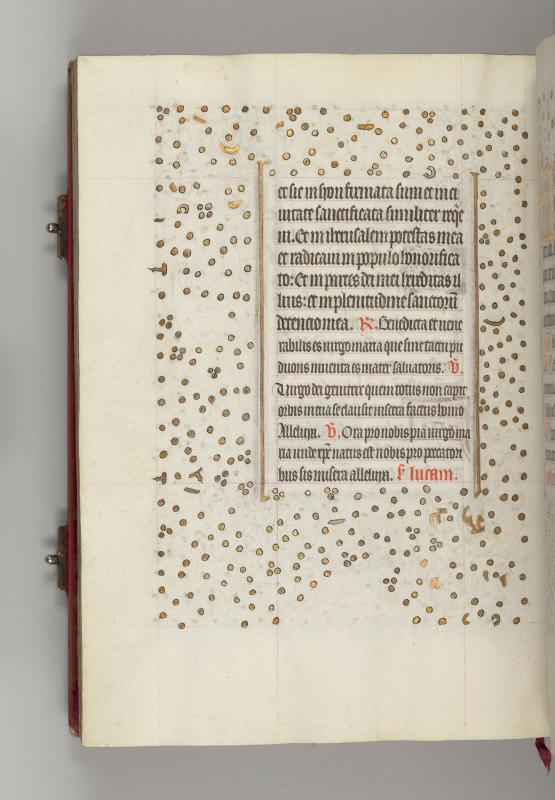 et sic in syon firmata sum et in ci
uitate sanctificata similiter req̄e
ui. Et in iherusalem potestas mea
et radicaui in populo honorifica
to: Et in partes dei mei hereditas il
lius: et in plenitudine sanctorū
detencio mea. R̄. Benedicta et vene
rabilis es virgo maria que sine tactu pu
doris inuenta es mater saluatoris. v̄.
Virgo dei genitrix quem totus non capit
orbis in tua se clausit viscera factus homo
Alleluya. v̄. Ora pro nobis pia virgo ma
ria unde xp̄c natus est nobis pro peccatori
bus sis misera alleluya. s̄ lucam.